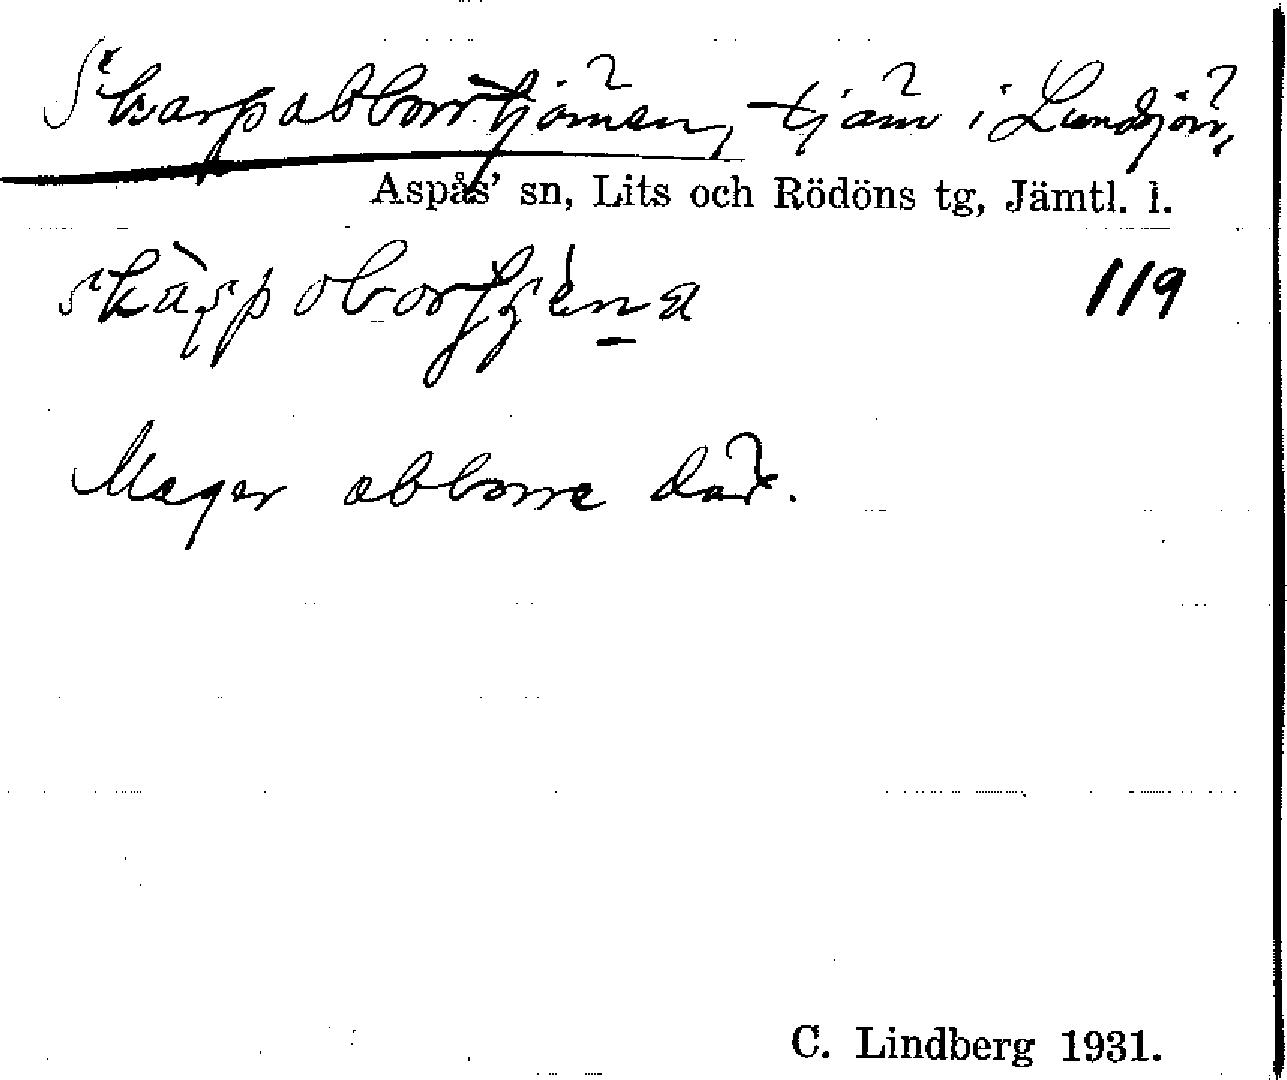 Skarpabborrtjärnen, tjärn i Lundsjön,
Aspås' sn, Lits och Rödöns tg, Jämtl. l.
119
Mager abborre där.
C. Lindberg 1931.